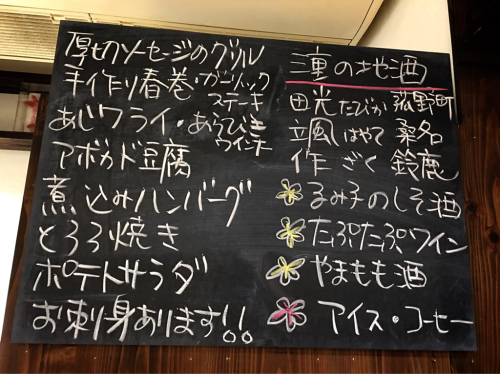 厚切ソーセージのグリル
手作り春巻・ガーリック
ステーキ
あじフライ・あらびき
ウインナー
アボカド豆腐
煮込みハンバーグ
とろろ焼き
ポテトサラダ
お刺身あります!!
三重の地酒
田光 たびか 菰野町
颯 はやて 桑名
作 ざく 鈴鹿
るみ子のしそ酒
たぷたぷワイン
やまもも酒
アイス・コーヒー